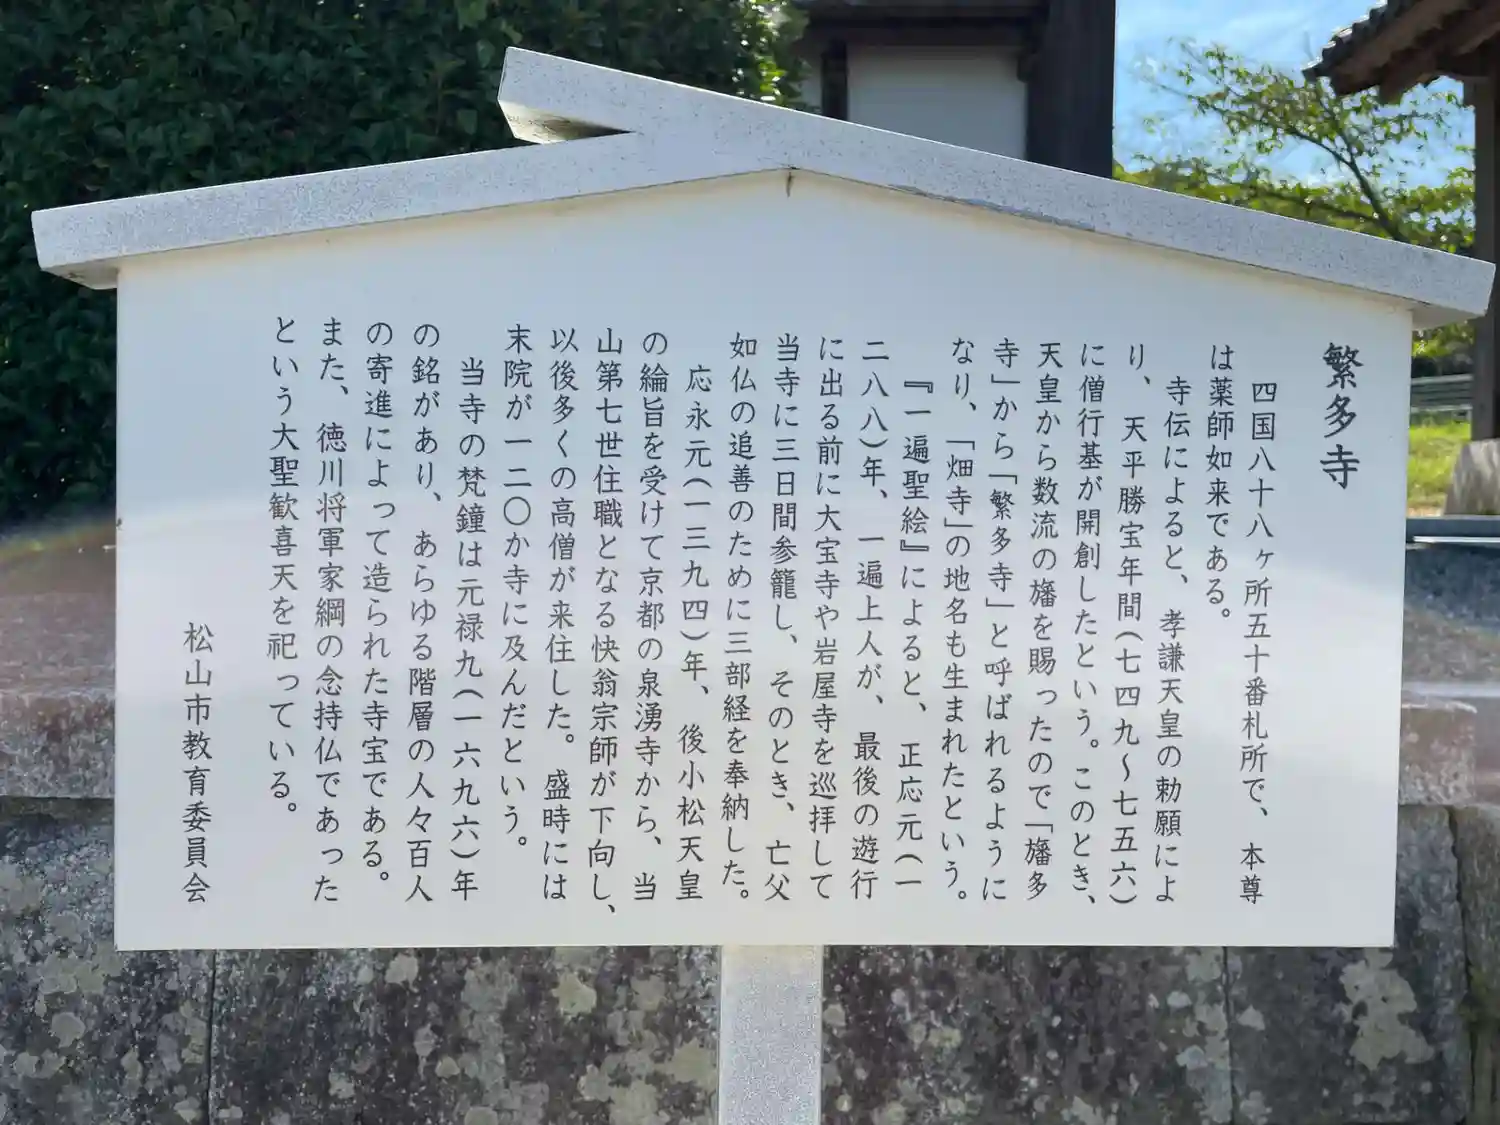 繁多寺
四国八十八ヶ所五十番札所で、本尊
は薬師如来である。
寺伝によると、孝謙天皇の勅願によ
り、天平勝宝年間(七四九〜七五六)
に僧行基が開創したという。このとき、
天皇から数流の旛を賜ったので「旛多
寺」から「繁多寺」と呼ばれるように
なり、「畑寺」の地名も生まれたという。
『一遍聖絵』によると、正応元(一
二八八)年、一遍上人が、最後の遊行
に出る前に大宝寺や岩屋寺を巡拝して
当寺に三日間参籠し、そのとき、亡父
如仏の追善のために三部経を奉納した。
応永元(一三九四)年、後小松天皇
の綸旨を受けて京都の泉湧寺から、当
山第七世住職となる快翁宗師が下向し、
以後多くの高僧が来住した。盛時には
末院が一二〇か寺に及んだという。
当寺の梵鐘は元禄九(一六九六)年
の銘があり、あらゆる階層の人々百人
の寄進によって造られた寺宝である。
また、徳川将軍家綱の念持仏であった
という大聖歓喜天を祀っている。
松山市教育委員会